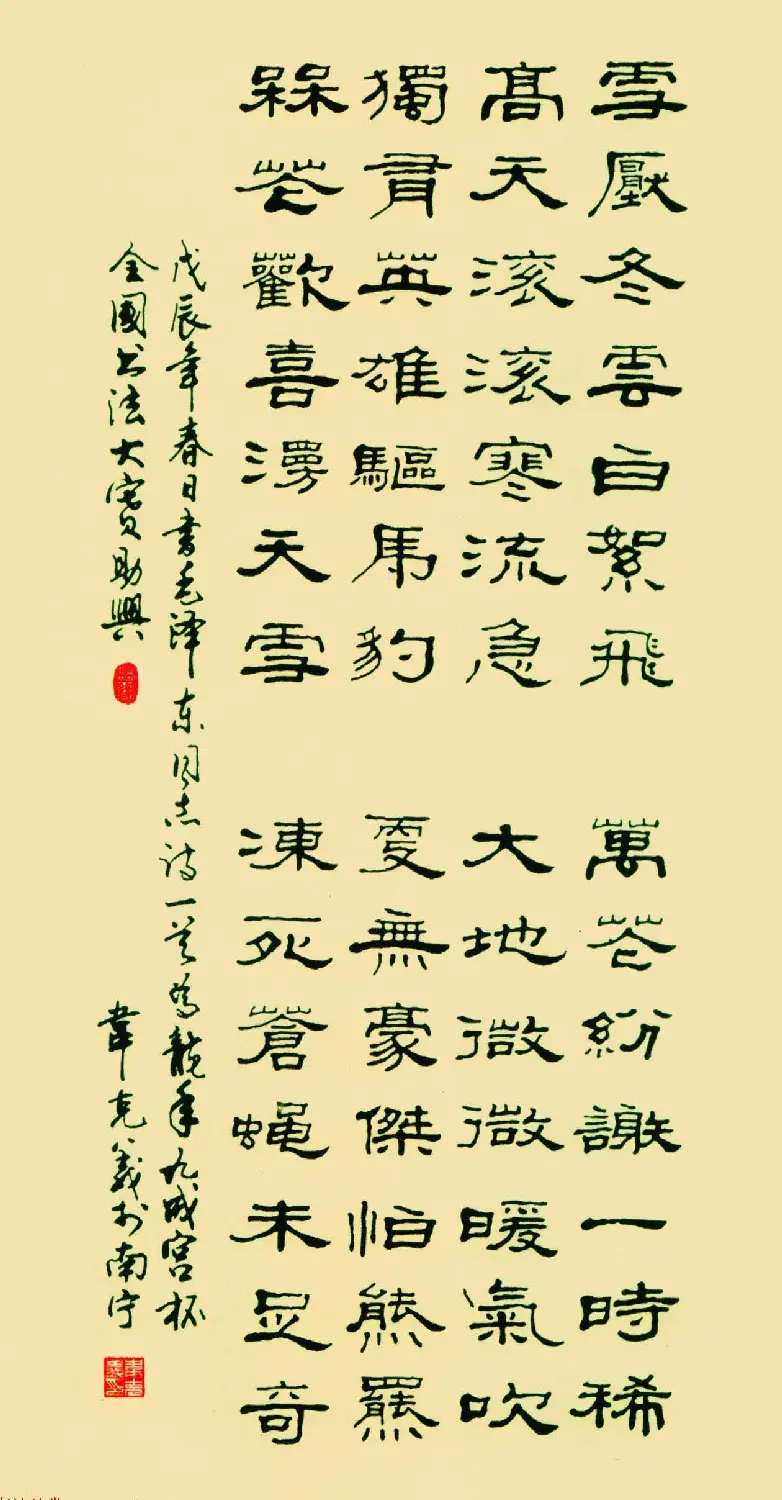 雪壓冬雲白絮飛 萬花紛謝一時稀
髙天滚滚寒流急 大地微微暖氣吹
獨有英雄驅虎豹 更無豪傑怕熊羆
槑花歡喜漫天雪 凍死蒼蝇未足奇
戊辰年春日书毛泽东同志诗一首为龍年九成宫杯
全國书法大賽助興 韋克義於南宁